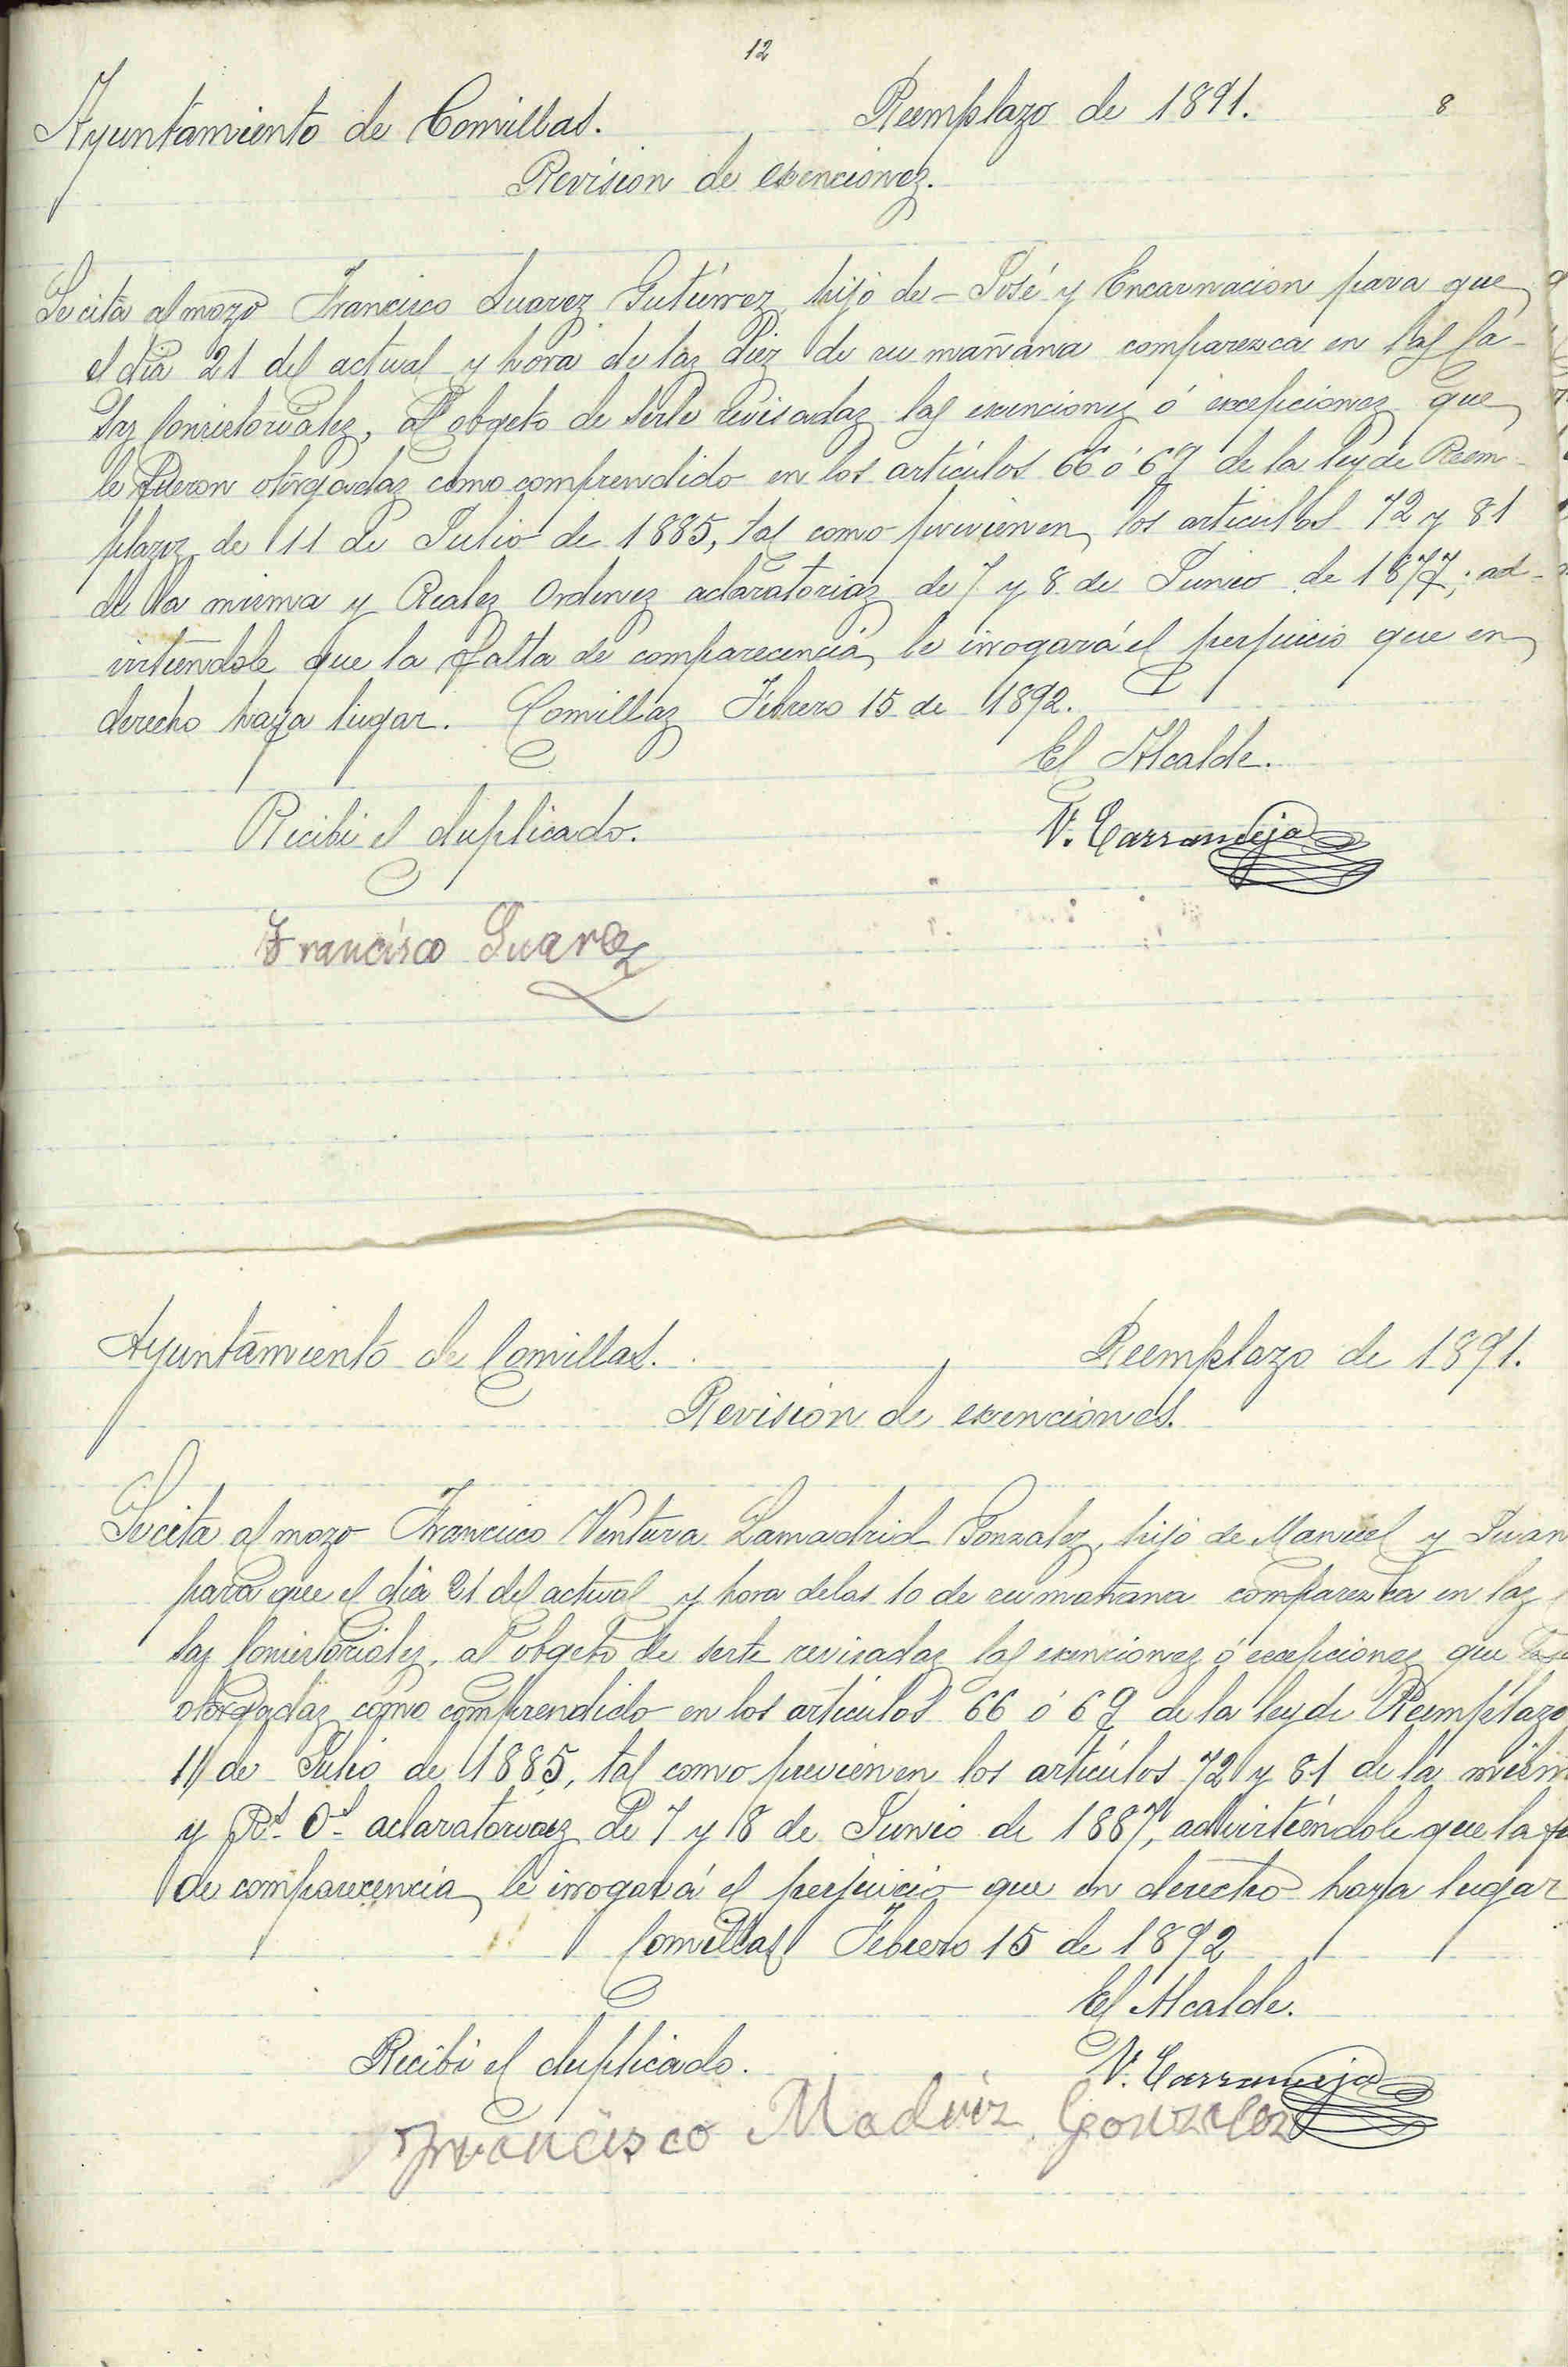 12
Ayuntamiento de Comillas. Reemplazo de 1891. 8
Revisión de exenciones.
Se cita al mozo Francisco Suarez Gutiérrez, hijo de - José y Encarnacion para que
el dia 21 del actual y hora de las diez de su mañana comparezca en las Ca-
sas Consistoriales, al obgeto de serle revisadas las exenciones ó excepciones que
le fueron otorgadas como comprendido en los artículos 66 ó 69 de la ley de Reem-
plazo de 11 de Julio de 1885, tal como previenen los articulos 72 y 81
de la misma y Reales Ordenes aclaratorias de 7 y 8 de Junio de 1877; ad-
virtiendole que la falta de comparecencia, le irrogará el perjuicio que en
derecho haya lugar. Comillas Febrero 15 de 1892.
El Alcalde.
Recibi el duplicado. V. Carrandeja
Francisco Suarez
Ayuntamiento de Comillas. Reemplazo de 1891.
Revisión de exenciones.
Se cita al mozo Francisco Ventura Lamadrid Gonzalez, hijo de Manuel y Juan
para que el dia 21 del actual y hora de las 10 de su mañana comparezca en las
sas Consistoriales, al obgeto de serle revisadas las exenciones ó excepciones que
otorgadas como comprendido en los artículos 66 ó 69 de la ley de Reemplazo
11 de Julio de 1885, tal como previenen los artículos 72 y 81 de la mism
y Rs. Os. aclaratorias de 7 y 8 de Junio de 1887, advirtiéndole que la fa
de comparecencia, le irrogará el perjuicio que en derecho haya lugar
Comillas Febrero 15 de 1892
El Alcalde.
Recibi el duplicado. V. Carrandeja
Francisco Madriz Gonzalez